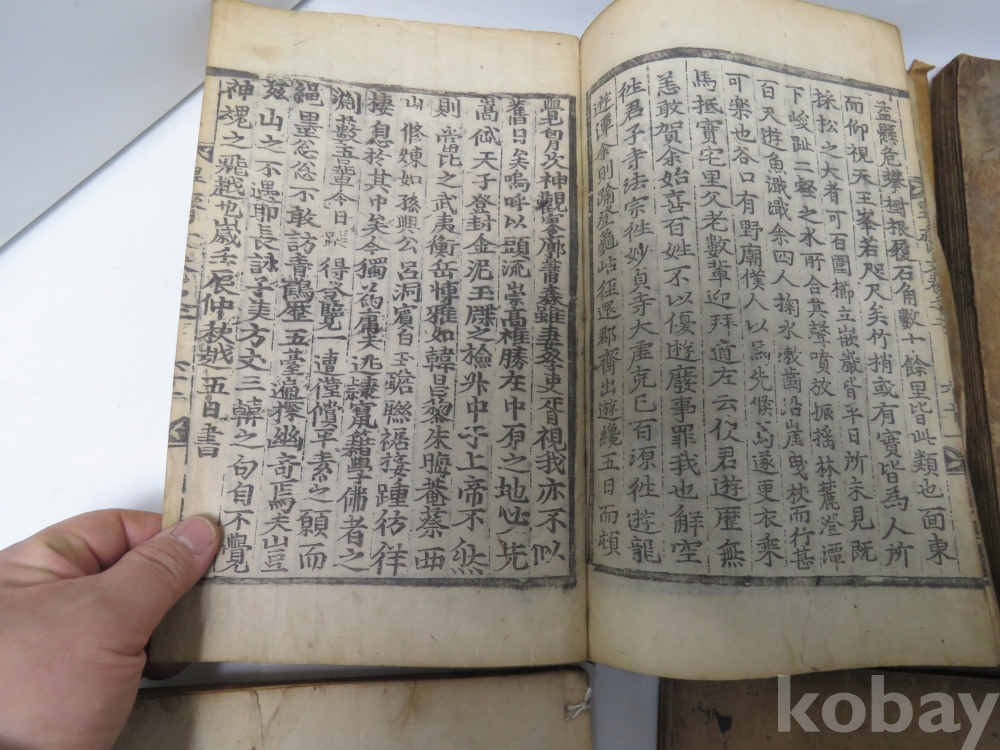 縣危攀樹根履石角數十餘里皆此類也面東
而仰視天王峯若咫尺矣竹梢或有實皆為人所
採松之大者可百圍櫛立嵌巖皆平日所未見既
下峻趾二壑之水肝合其聲噴放振搖林麓澄潭
百尺遊魚余四人掬水漱齒沿崖曳杖而行甚
可樂也谷口有野廟僕人以馬先候焉遂更衣乘
馬抵實宅里父老數輩迎拜道左云使君遊歷無
恙敢賀余始喜百姓不以優遊廢事罪我也解空
往君子寺法宗往妙貞寺大虛克已百源往遊龍
遊潭余則踰登龜岾徑還郡齋出遊纔五日而頓
覺胷次神觀寥廓森雖妻孥吏胥視我亦不似
舊日矣嗚呼以頭流崇高雄勝在中原之地必先
嵩岱天子登封金泥玉牒之檢升中于上帝不然
則當比之武夷衡岳博雅如韓昌黎朱晦菴蔡西
山修煉如孫興公呂洞賓白玉蟾聯裾接踵彷徉
棲息於其中矣今獨為庸夫逃隸竄籍學佛者之
淵藪吾輩今日蹤得登覽一遭僅償平素之願而
繩墨怱怱不敢訪青鶴歷五臺遍探幽奇焉夫山豈
玆山之不遇耶長詠子美方丈三韓之句自不覺
神魂之飛越也歲壬辰仲秋越五日書
kobay